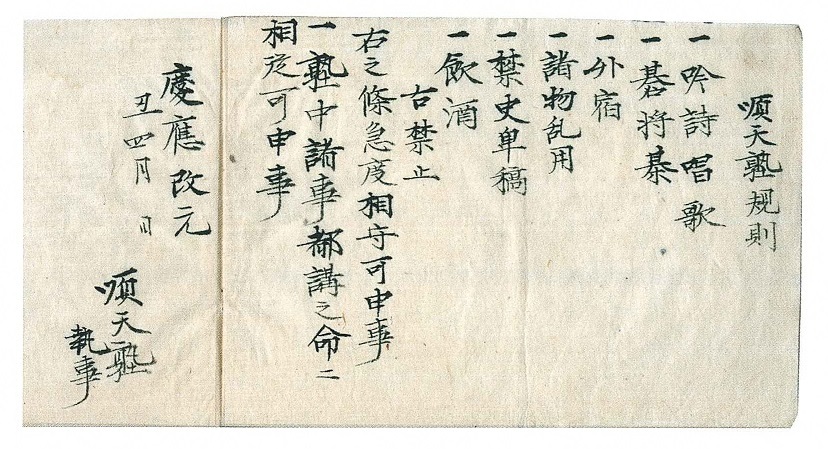 順天塾規則
一吟詩唱歌
一碁将棊
一外宿
一諸物乱用
一禁史稿
一飲酒
右禁止
右之條急度相守可申事
一塾中諸事都講之命ニ
相可申事
慶應改元
丑四月 日
順天塾
執事